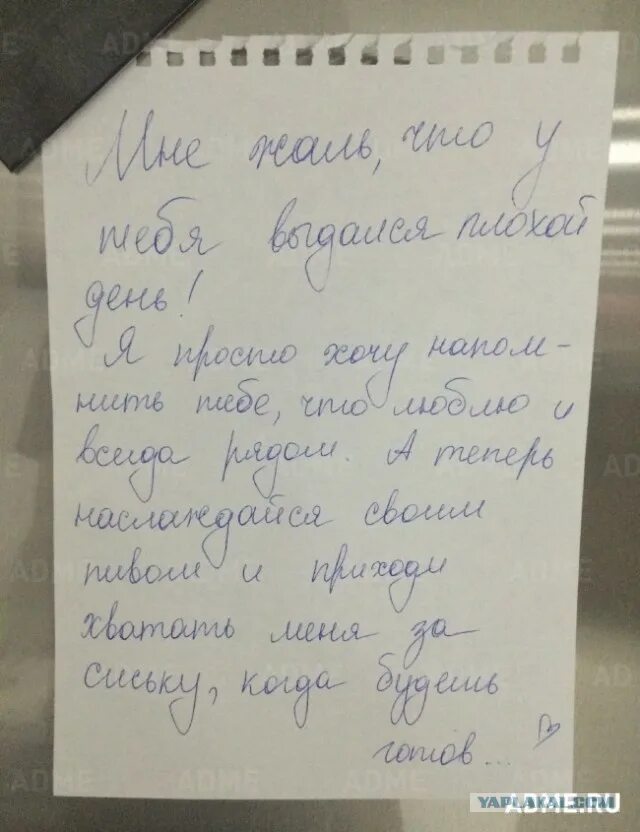 Мне жаль, что у
тебя выдался плохой
день!
Я просто хочу напом-
нить тебе, что люблю и
всегда рядом. А теперь
наслаждайся своим
пивом и приходи
хватать меня за
сиську, когда будешь
готов...
YAPLAKAL.COM
ADME.RU